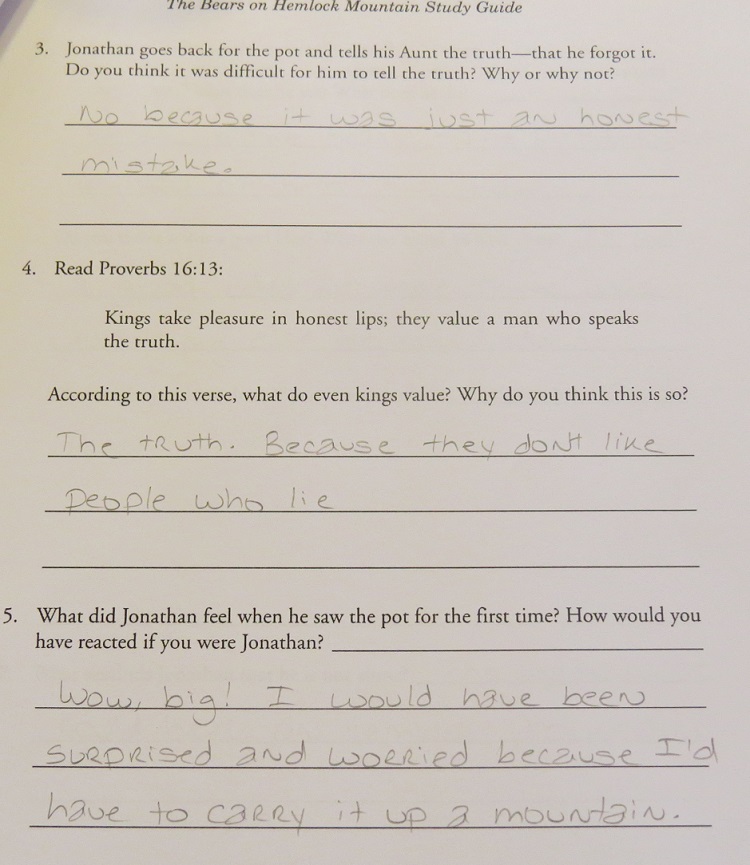 The Bears on Hemlock Mountain Study Guide
3. Jonathan goes back for the pot and tells his Aunt the truth—that he forgot it.
Do you think it was difficult for him to tell the truth? Why or why not?
No because it was just an honest
mistake.
4. Read Proverbs 16:13:
Kings take pleasure in honest lips; they value a man who speaks
the truth.
According to this verse, what do even kings value? Why do you think this is so?
The tRuth. Because they don't like
People who lie
5. What did Jonathan feel when he saw the pot for the first time? How would you
have reacted if you were Jonathan?
Wow, big! I would have been
suRpRised and woRRied because I'd
have to caRRy it up a mountain.